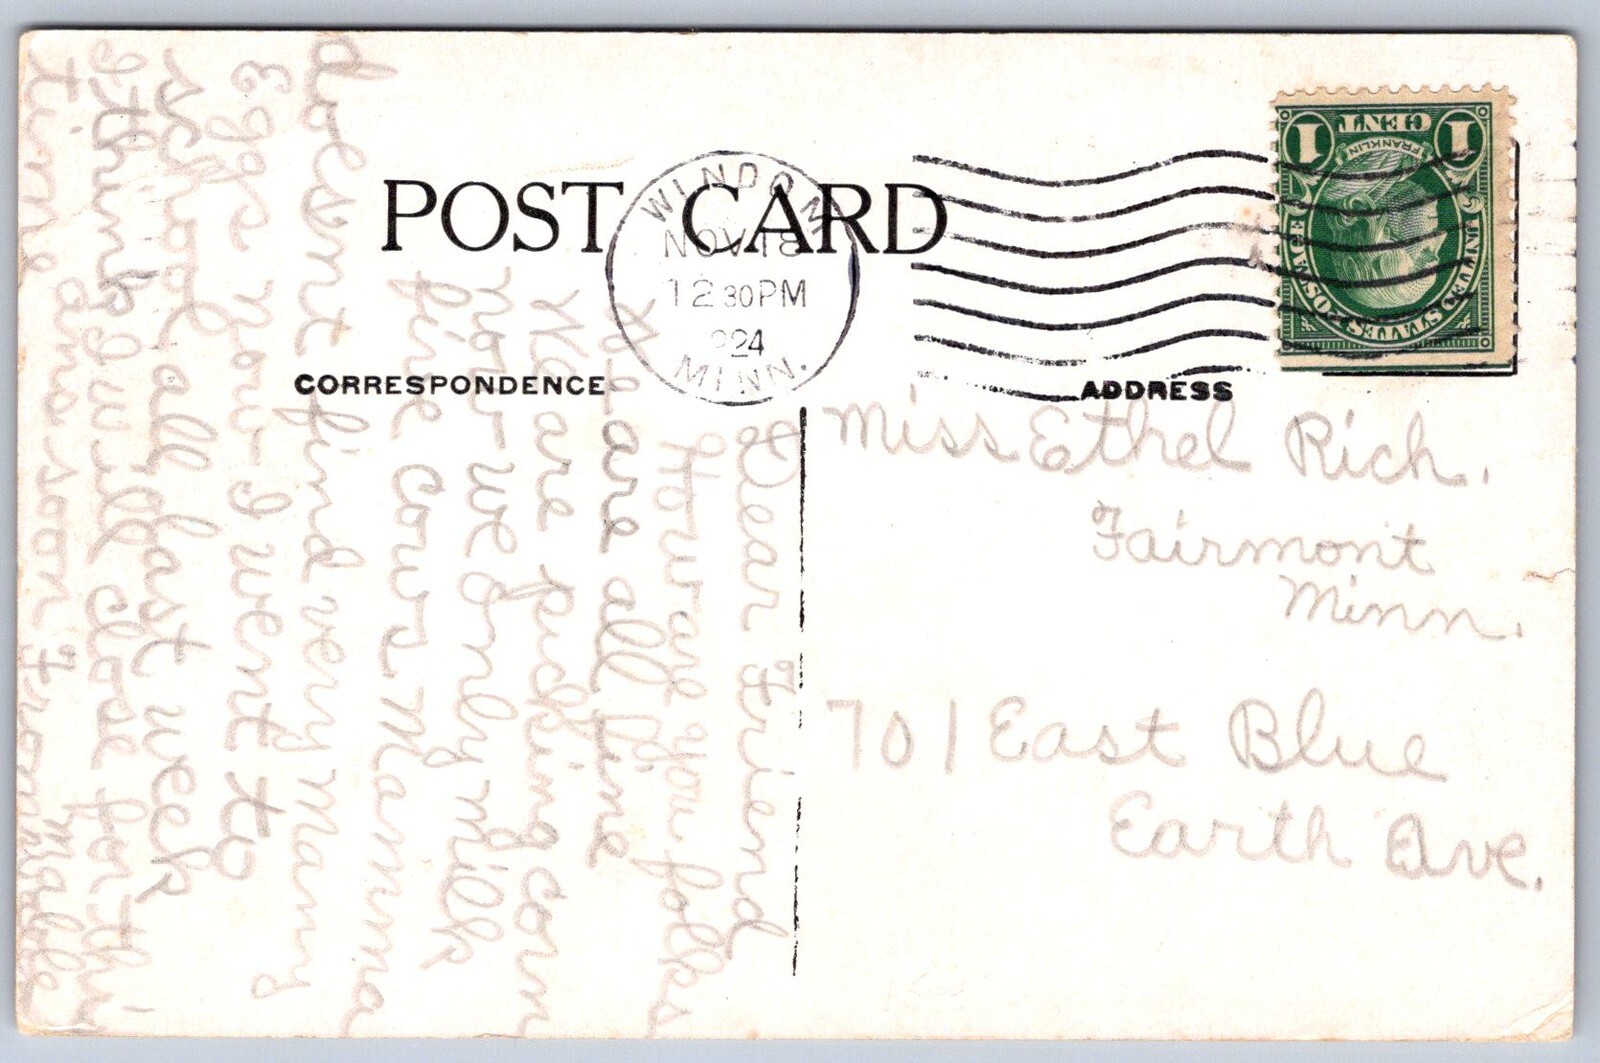 POST CARD
WINDOM
NOV 18
12 30 PM
924
MINN.
1 CENT 1
FRANKLIN
U.S. POSTAGE
CORRESPONDENCE
ADDRESS
Miss Ethel Rich.
Fairmont
Minn.
701 East Blue
Earth Ave.
Dear Friend
How are you folks
We are all fine
We are picking corn
now we only milk
five cows. Mamma
doesnt find very many
Eggs now - I went to
school all last week
I think I will close for this
time ans soon From
Mable